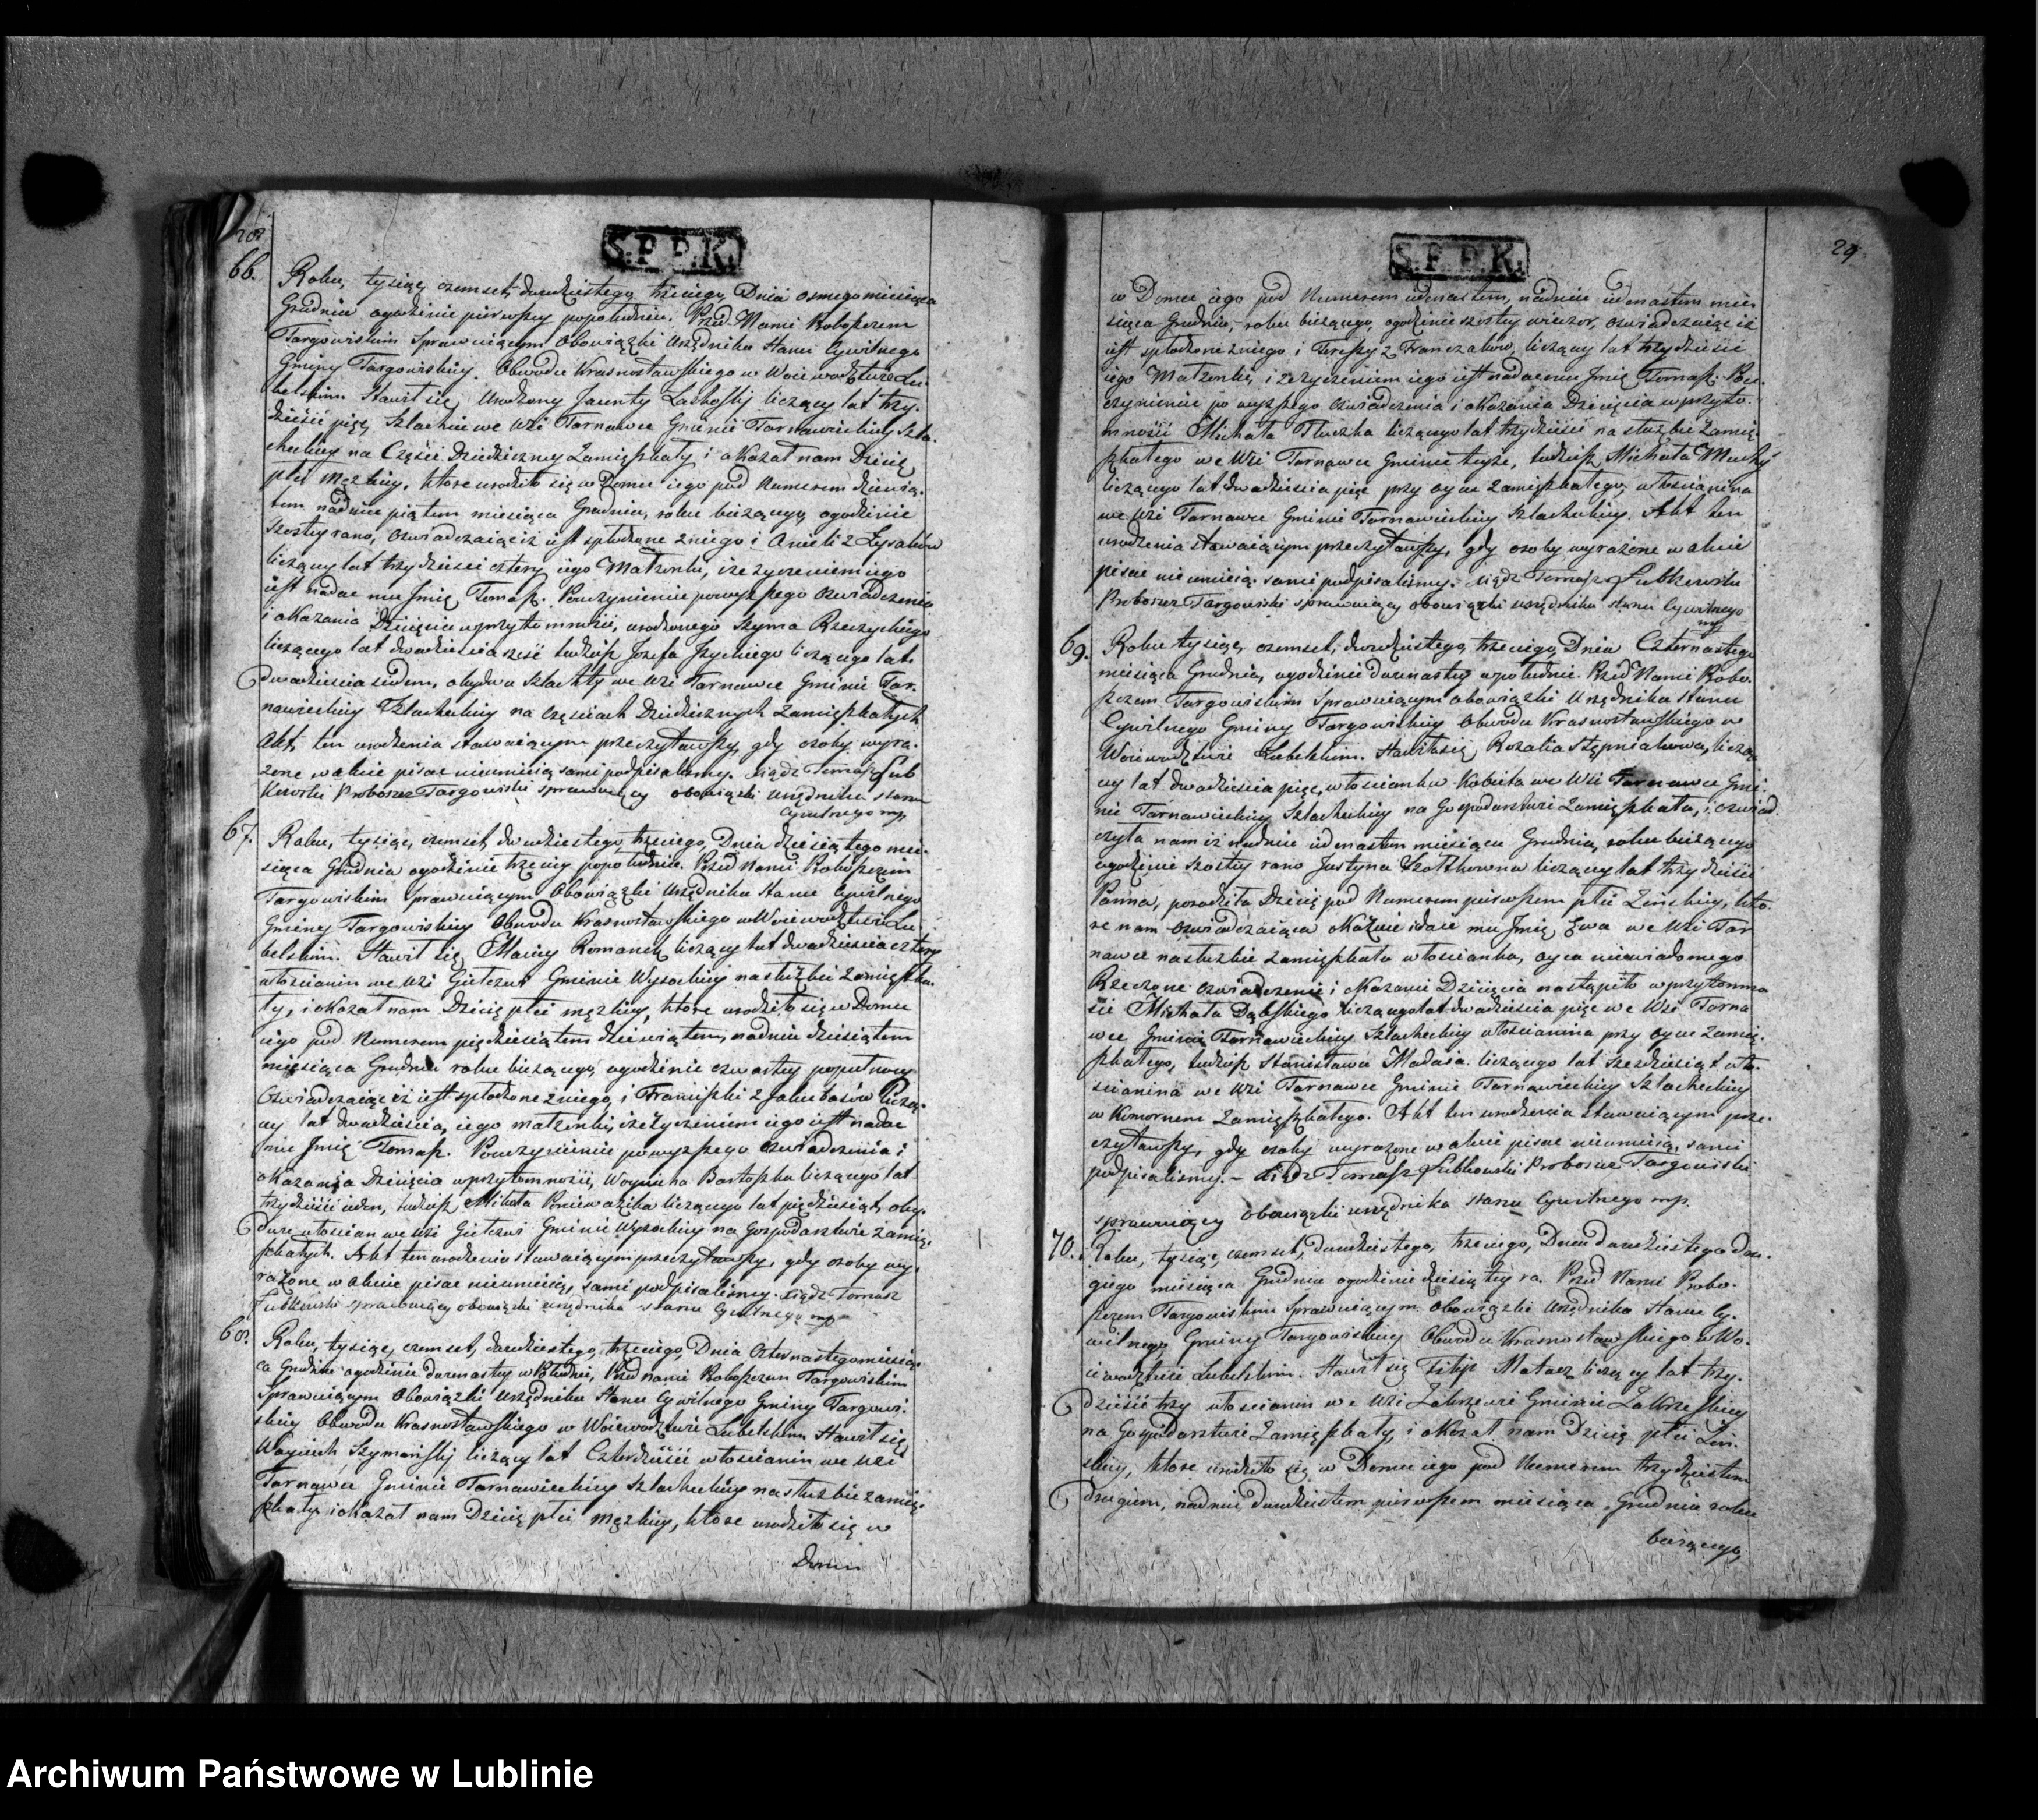 S.P.P.K.
66.
Roku, tysiąc ozemset, dwudziestego trzeciego Dnia osmego miesiąca
Grudnia ogodzinie pierwszey popołudniu. Przed Nami Proboszczem
Targowiskim Sprawuiącym Obowiązki Urzędnika Stanu Cywilnego
Gminy Targowiskiey. Obwodu Krasnostawskiego w Woiewodztwie Lu-
belskim. Stawił się Urodzony Jacenty liczący lat trzy-
dzieści pięć, Szlachcic we wsi Tarnawce Gminie Tarnawieckiey Szla-
checkiey na Części Dziedziczney Zamięszkały i okazał nam Dziecię
płci męzkiey, ktore urodziło się w Domu iego pod Numerem dziewią-
tem nadniu piątem miesiąca Grudnia, roku bieżącego ogodzinie
szostey rano, oswiadczaiąc iż iest spłodzone zniego i Anieli z Łysaków
liczący lat trzydzieści cztery iego Małzonki, i że zyczeniem iego
iest nadać mu Jmię Tomasz. Pouczynieniu powyższego oswiadczenia
i okazania Dziecięcia wprzytomności, urodzonego Szyma Rzeczyckiego
liczącego lat dwadzieścia sześć tudzież Józefa liczącego lat
dwadzieścia siedem, obydwu Szlachty we wsi Tarnawce Gminie Tar-
nawieckiey Szlacheckiey na częściach Dziedzicznych Zamięszkałych
Akt, ten urodzenia stawaiącym przeczytawszy, gdy osoby wyra-
żone w akcie pisać nieumieią sami podpisalismy. Xiądz Tomasz Lub
kowski Proboszcz Targowiski sprawuiący obowiązki urzędnika stanu
Cywilnego mp
67.
Roku, tysiąc, ozemset, dwudziestego, trzeciego, Dnia dziesiątego mie-
siąca Grudnia ogodzinie trzeciey popołudniu. Przed Nami Proboszczem
Targowiskim Sprawuiącym Obowiązki Urzędnika Stanu Cywilnego
Gminy Targowiskiey Obwodu Krasnostawskiego w Woiewodztwie Lu-
belskim. Stawił się Maciey Romanek liczący lat dwadzieścia cztery
włościanin we wsi Giełczwi Gminie Wysockiey na służbie zamięszka-
ły, i okazał nam Dziecię płci męzkiey, ktore urodziło się w Domu
iego pod Numerem pięćdziesiątem dziewiątem, nadniu dziesiątem
miesiąca Grudnia roku bieżącego, ogodzinie czwartey popułnocy
Oswiadczaiąc iż iest spłodzone zniego, i Franciszki z Jakubasów licza-
cy lat dwadzieścia, iego małzonki, iżeżyczeniem iego iest nadać
mu Jmię Tomasz. Pouczynieniu powyższego oswiadczenia i
okazania Dziecięcia wprzytomności, Woyciecha Bartoszka liczącego lat
trzydzieści ieden, tudzież Mikołaia liczącego lat pięćdziesiąt, oby-
dwu włoscian we wsi Giełczwi Gminie Wysockiey na Gospodarstwie zamię-
szkałych. Akt ten urodzenia stawaiącym przeczytawszy, gdy osoby wy-
rażone w akcie pisać nieumieią, sami podpisalismy. Xiądz Tomasz
Lubkowski sprawuiący obowiązki urzędnika stanu Cywilnego mp
68.
Roku, tysiąc, ozemset, dwudziestego, trzeciego, Dnia Czternastego miesią-
ca Grudnia ogodzinie dwunastey w Południe, Przed nami Proboszczem Targowiskim
Sprawuiącym Obowiązki Urzędnika Stanu Cywilnego Gminy Targowi-
skiey Obwodu Krasnostawskiego w Woiewodztwie Lubelskim Stawił się
Woyciech Szymański liczący lat Czterdzieści włościanin we wsi
Tarnawce Gminie Tarnawieckiey Szlacheckiey na służbie zamię-
szkały i okazał nam Dziecię płci męzkiey, ktore urodziło się w
Domu
S.P.P.K.
29
w Domu iego pod Numerem iedenastem, nadniu iedenastem mie-
siąca Grudnia, roku bieżącego, ogodzinie szostey wieczor, oswiadczaiąc iż
iest spłodzone zniego i Teressy z Franczaków, liczący lat trzydzieści
iego Małzonki, i ze życzeniem iego iest nadać mu Jmię Tomasz. Pou-
czynieniu powyższego oswiadczenia i okazania Dziecięcia w przyto-
mności Michała Tłuczka liczącego lat trzydzieści na służbie Zamię-
szkałego we wsi Tarnawce Gminie teyże, tudzież Michała Muchy
liczącego lat dwadzieścia pięć przy oycu zamięszkałego, włoscianina
we wsi Tarnawce Gminie Tarnawieckiey Szlacheckiey. Akt ten
urodzenia stawaiącym przeczytawszy, gdy osoby wyrażone w akcie
pisać nieumieią sami podpisalismy. Xiądz Tomasz Lubkowski
Proboszcz Targowiski sprawuiący obowiązki urzędnika stanu Cywilnego
mp
69.
Roku tysiąc, ozemset, dwudziestego, trzeciego, Dnia Czternastego
miesiąca Grudnia, ogodzinie dwunastey wpołudnie. Przed Nami Probo-
szczem Targowiskim Sprawuiącym obowiązki Urzędnika Stanu
Cywilnego Gminy Targowiskiey Obwodu Krasnostawskiego w
Woiewodztwie Lubelskim. Stawiła się Rozalia Stępniakowa, licza-
cy lat dwadzieścia pięć, włoscianka Kobieta we wsi Tarnawce Gmi-
nie Tarnawieckiey Szlacheckiey na Gospodarstwie Zamięszkała, i oswiad
czyła nam iż nadniu iedenastem miesiąca Grudnia, roku bieżącego
ogodzinie szostey rano Justyna liczący lat trzydzieści
Panna, porodziła Dziecię pod Numerem pierwszem płci Zeńskiey, kto-
re nam oswiadczaiąca okazuie i daie mu Jmię Ewa we wsi Tar
nawce na służbie zamięszkała włoscianka, oyca niewiadomego.
Rzeczone oswiadczenie i okazanie Dziecięcia nastąpiło w przytomno
ści Michała Dąbskiego liczącego lat dwadzieścia pięć we wsi Tarna
wce Gminie Tarnawieckiey Szlacheckiey włoscianina przy oycu zamię-
szkałego, tudzież Stanisława liczącego lat sześćdziesiąt wło-
scianina we wsi Tarnawce Gminie Tarnawieckiey Szlacheckiey
w Komornem Zamięszkałego. Akt ten urodzenia stawaiącym prze-
czytawszy, gdy osoby wyrażone w akcie pisać nieumieią, sami
podpisalismy. – Xiądz Tomasz Lubkowski Proboszcz Targowiski
sprawuiący obowiązki urzędnika stanu Cywilnego mp.
70.
Roku, tysiąc, ozemset, dwudziestego, trzeciego, Dnia dwudziestego dru-
giego miesiąca Grudnia ogodzinie dziesiątey ra. Przed Nami Probo-
szczem Targowiskim Sprawuiącym obowiązki Urzędnika Stanu Cy-
wilnego Gminy Targowiskiey Obwodu Krasnostawskiego w Wo-
iewodztwie Lubelskim. Stawił się Filip Matacz liczący lat trzy-
dzieści trzy włoscianin we wsi Zakrzewie Gminie Zakrzeskiey
na Gospodarstwie Zamięszkały, i okazał nam Dziecię płci Zeń-
skiey, ktore urodziło się w Domu iego pod Numerem trzydziestem
drugiem, nadniu dwudziestem pierwszem miesiąca Grudnia roku
bieżącego,
Archiwum Państwowe w Lublinie